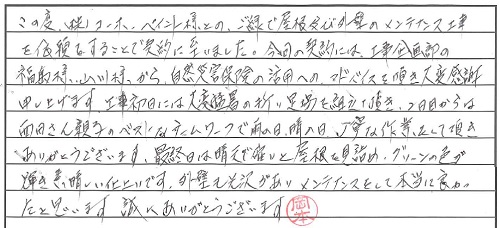 この度、(株)コーホーペイント様との、ご縁で屋根及び外壁のメンテナンス工事
を依頼をすることで契約に至りました。今回の契約には、工事企画部の
福島様、山川様、から、自然災害保険の活用へのアドバイスを頂き大変感謝
申し上げます。工事初日には大変猛暑の折り足場を組立て頂き、2日目からは
向田さん親子のベストなチームワークで雨の日、晴の日、丁寧な作業をして頂き
ありがとうございます。最終日は晴天で庭と屋根を見詰め、グリーンの色が
輝き素晴しい仕上りです。外壁も光沢がありメンテナンスをして本当に良かっ
たと思います 誠にありがとうございます
岡本